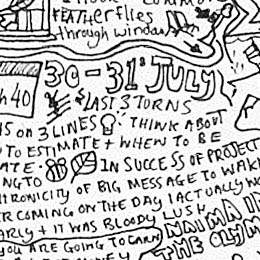 COMMON
FEATHERflies
through window
30 - 31st JULY
h 40
& LAST 3 TURNS
ON 3 LINES THINK ABOUT
TO ESTIMATE + WHEN TO BE
ATE. IN SUCCESS OF PROJECT
NG TO
TRONICITY OF BIG MESSAGE TO WAKE
R COMING ON THE DAY I ACTUALLY WO
ARLY + IT WAS BLOODY LUSH
YOU ARE GOING TO EARN
THE OLYM